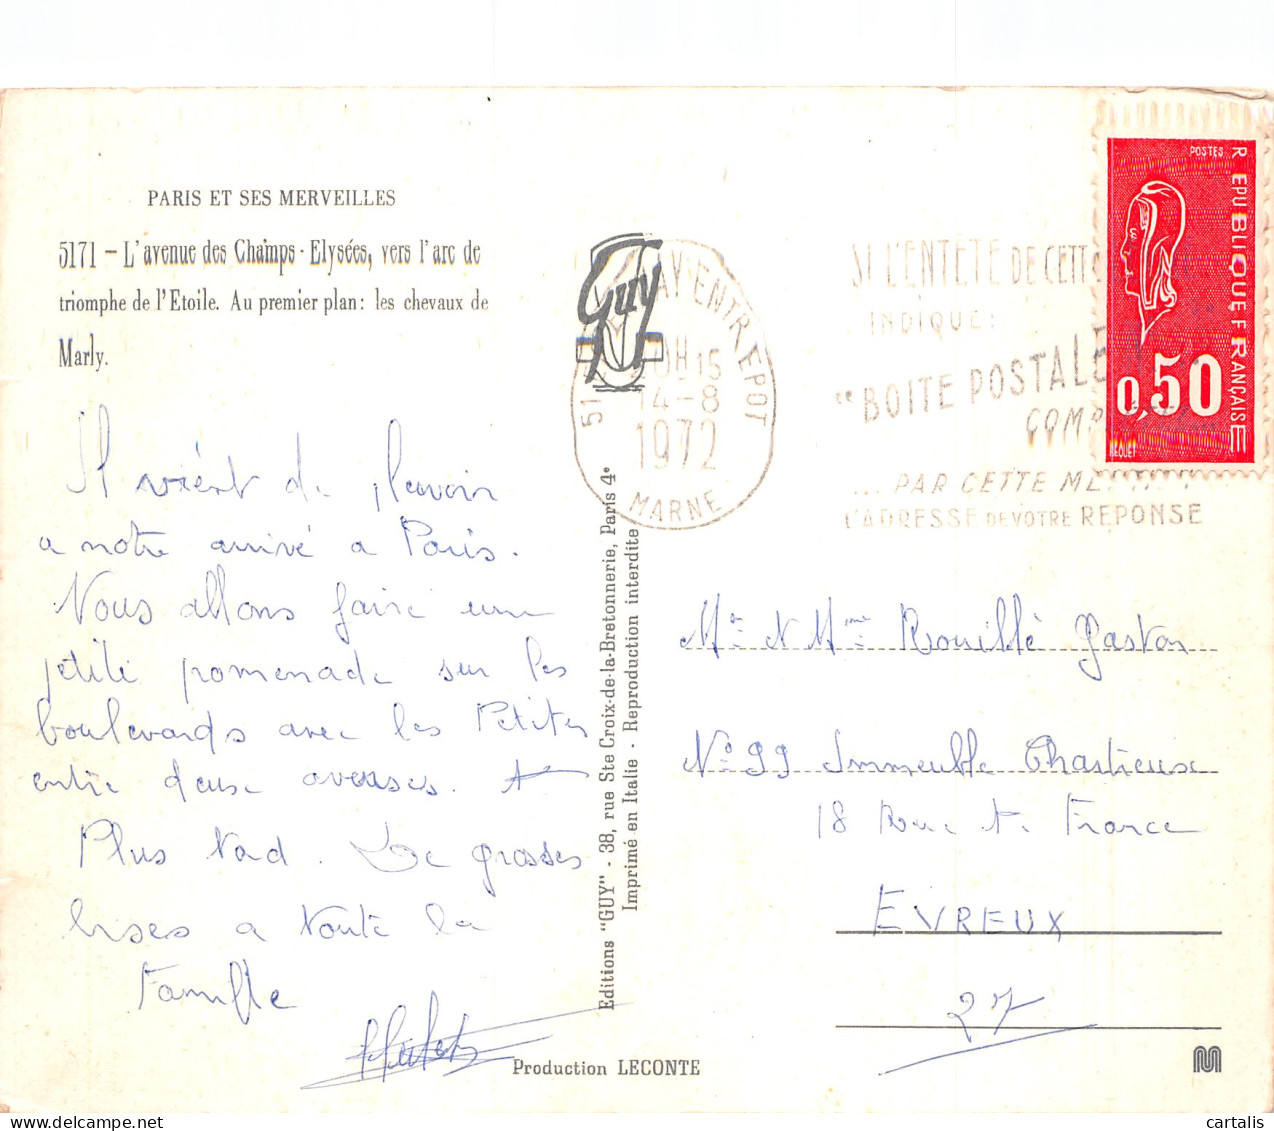 PARIS ET SES MERVEILLES
5171 - L'avenue des Champs-Elysées, vers l'arc de
triomphe de l'Etoile. Au premier plan: les chevaux de
Marly.
Il vient de pleuvoir
a notre arrivé a Paris.
Nous allons faire une
petite promenade sur les
boulevards avec les Petites
entre deux averses. A
Plus Tard. De grosses
bises a toute la
Famille
Guy
51 AY ENTREPOT
20H15
14-8
1972
MARNE
SI L'ENTETE DE CETTE
INDIQUE:
"BOITE POSTALE"
... PAR CETTE MENTION
L'ADRESSE DE VOTRE REPONSE
POSTES
REPUBLIQUE FRANÇAISE
0,50
BEQUET
Editions "GUY" - 38, rue Ste Croix-de-la-Bretonnerie, Paris 4e
Imprimé en Italie - Reproduction interdite
Mr et Mme Rouillé Gaston
N° 99 Immeuble Chartreuse
18 Rue de France
EVREUX
27
Production LECONTE
cartalis
delcampe.net